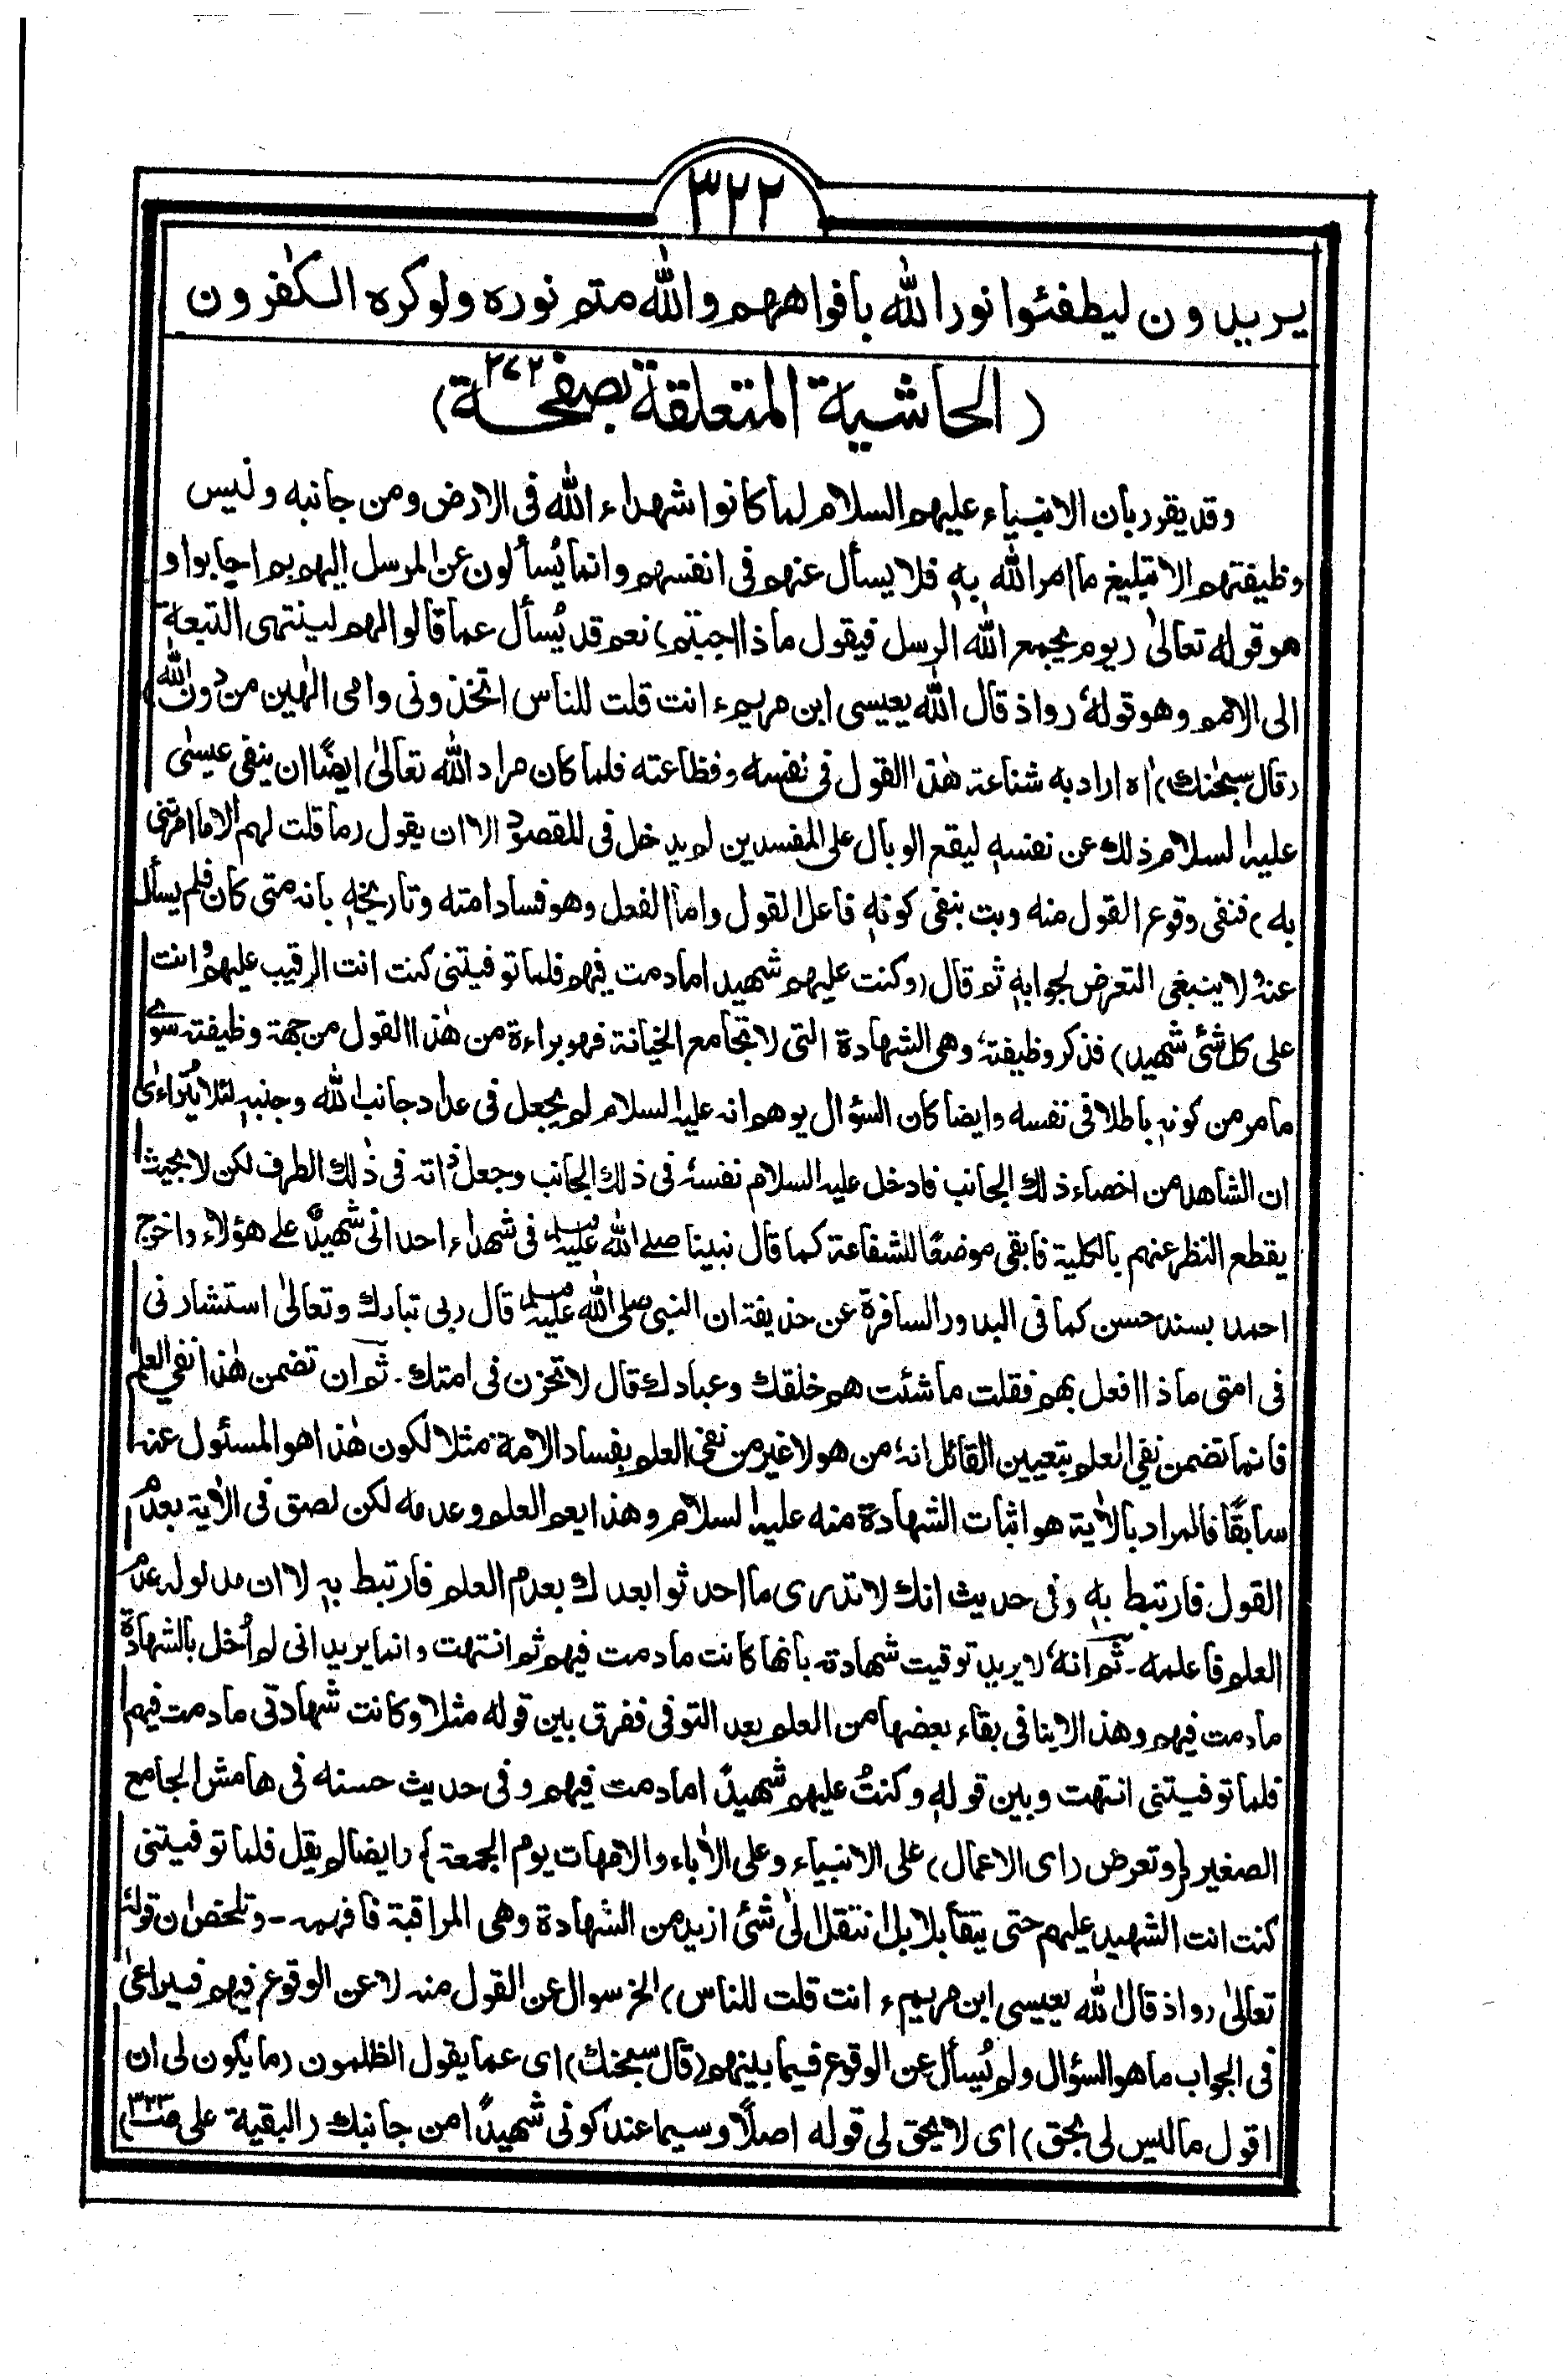 ٣٢٢
يريدون ليطفئوا نورالله بافواههم والله متم نوره ولوكره الكٰفرون
(الحاشية المتعلقة بصفحة ٢٧٢)
وقد يقرر بان الانبياء عليهم السلام لما كانوا شهداء الله فى الارض ومن جانبه وليس
وظيفتهم الا تبليغ ما امر الله به فلا يسأل عنهم فى انفسهم وانما يُسألون عن المرسل اليهم بم اجابوا و
هو قوله تعالىٰ (يوم يجمع الله الرسل فيقول ماذا اجبتم) نعم قد يُسأل عما قالوا لهم لينتهى التبعة
الى الامم وهو قولهٗ (واذ قال الله يعيسى ابن مريم ء انت قلت للناس اتخذونى وامى الٰهين من دون الله)
(قال سبحٰنك) اه اراد به شناعة هٰذا القول فى نفسه وفظاعته فلما كان مراد الله تعالىٰ ايضًا ان ينفى عيسىٰ
عليه السلام ذلك عن نفسهٖ ليقع الوبال على المفسدين لم يدخل فى المقصود الا ان يقول (ما قلت لهم الا ما امرتنى
به) فنفى وقوع القول منه وبت بنفى كونهٖ فاعل القول واما الفعل وهو فساد امته وتاريخهٖ بانه متى كان فلم يسأل
عنه ولا ينبغى التعرض لجوابهٖ ثم قال (وكنت عليهم شهيدا ما دمت فيهم فلما توفيتنى كنت انت الرقيب عليهم وانت
على كل شئ شهيد) فذكر وظيفتهٗ وهى الشهادة التى لا تجامع الخيانة فهو براءة من هٰذا القول من جهة وظيفته سوٰے
ما مر من كونهٖ باطلا فى نفسه وايضا كان السؤال يوهم انه عليه السلام لم يجعل فى عداد جانب الله وجنبهٖ لئلا يُتراءىٰ
ان الشاهد من اخصاء ذلك الجانب فادخل عليه السلام نفسهٗ فى ذلك الجانب وجعل ذاته فى ذٰلك الطرف لكن لا بحيث
يقطع النظر عنهم بالكلية فابقى موضعًا للشفاعة كما قال نبينا صلے الله عليه وسلم فى شهداء احد انى شهيدٌ علے هؤلاء واخرج
احمد بسند حسن كما فى البدور السافرة عن حذيفة ان النبى صلى الله عليه وسلم قال ربى تبارك وتعالىٰ استشارنى
فى امتى ماذا افعل بهم فقلت ما شئت هم خلقك وعبادك قال لا تحزن فى امتك ۔ ثم ان تضمن هٰذا نفى العلم
فانما تضمن نفى العلم بتعيين القائل انهٗ من هو لا غير من نفى العلم بفساد الامة مثلا لكون هٰذا هو المسئول عنه
سابقًا فالمراد بالاٰية هو اثبات الشهادة منه عليه السلام وهذا يعم العلم وعدمه لكن لصق فى الاٰية بعدم
القول فارتبط بهٖ وفى حديث انك لا تدرى ما احدثوا بعدك بعدم العلم فارتبط بهٖ لا ان مدلوله عدم
العلم فاعلمه ۔ ثم انهٗ لا يريد توقيت شهادته بانها كانت ما دمت فيهم ثم انتهت وانما يريد انى لم اُخل بالشهادة
ما دمت فيهم وهذا لا ينافى بقاء بعضها من العلم بعد التوفى ففرق بين قوله مثلا وكانت شهادتى ما دمت فيهم
فلما توفيتنى انتهت وبين قولهٖ وكنتُ عليهم شهيدًا ما دمت فيهم وفى حديث حسنه فى هامش الجامع
الصغير {وتعرض (اى الاعمال) على الانبياء وعلى الاٰباء والامهات يوم الجمعة} وايضا لم يقل فلما توفيتنى
كنت انت الشهيد عليهم حتى يتقابلا بل انتقل الىٰ شئ ازيد من الشهادة وهى المراقبة فافهمه ـ وتلخص ان قولهٗ
تعالىٰ (واذ قال الله يعيسى ابن مريم ء انت قلت للناس) الخ سوال عن القول منه لا عن الوقوع فيهم فيراعىٰ
فى الجواب ما هو السؤال ولم يُسأل عن الوقوع فيما بينهم (قال سبحٰنك) اى عما يقول الظٰلمون (ما يكون لى ان
اقول ما ليس لى بحق) اى لا يحق لى قوله اصلًا وسيما عند كونى شهيدًا من جانبك (البقية على صـ٣٢٣)